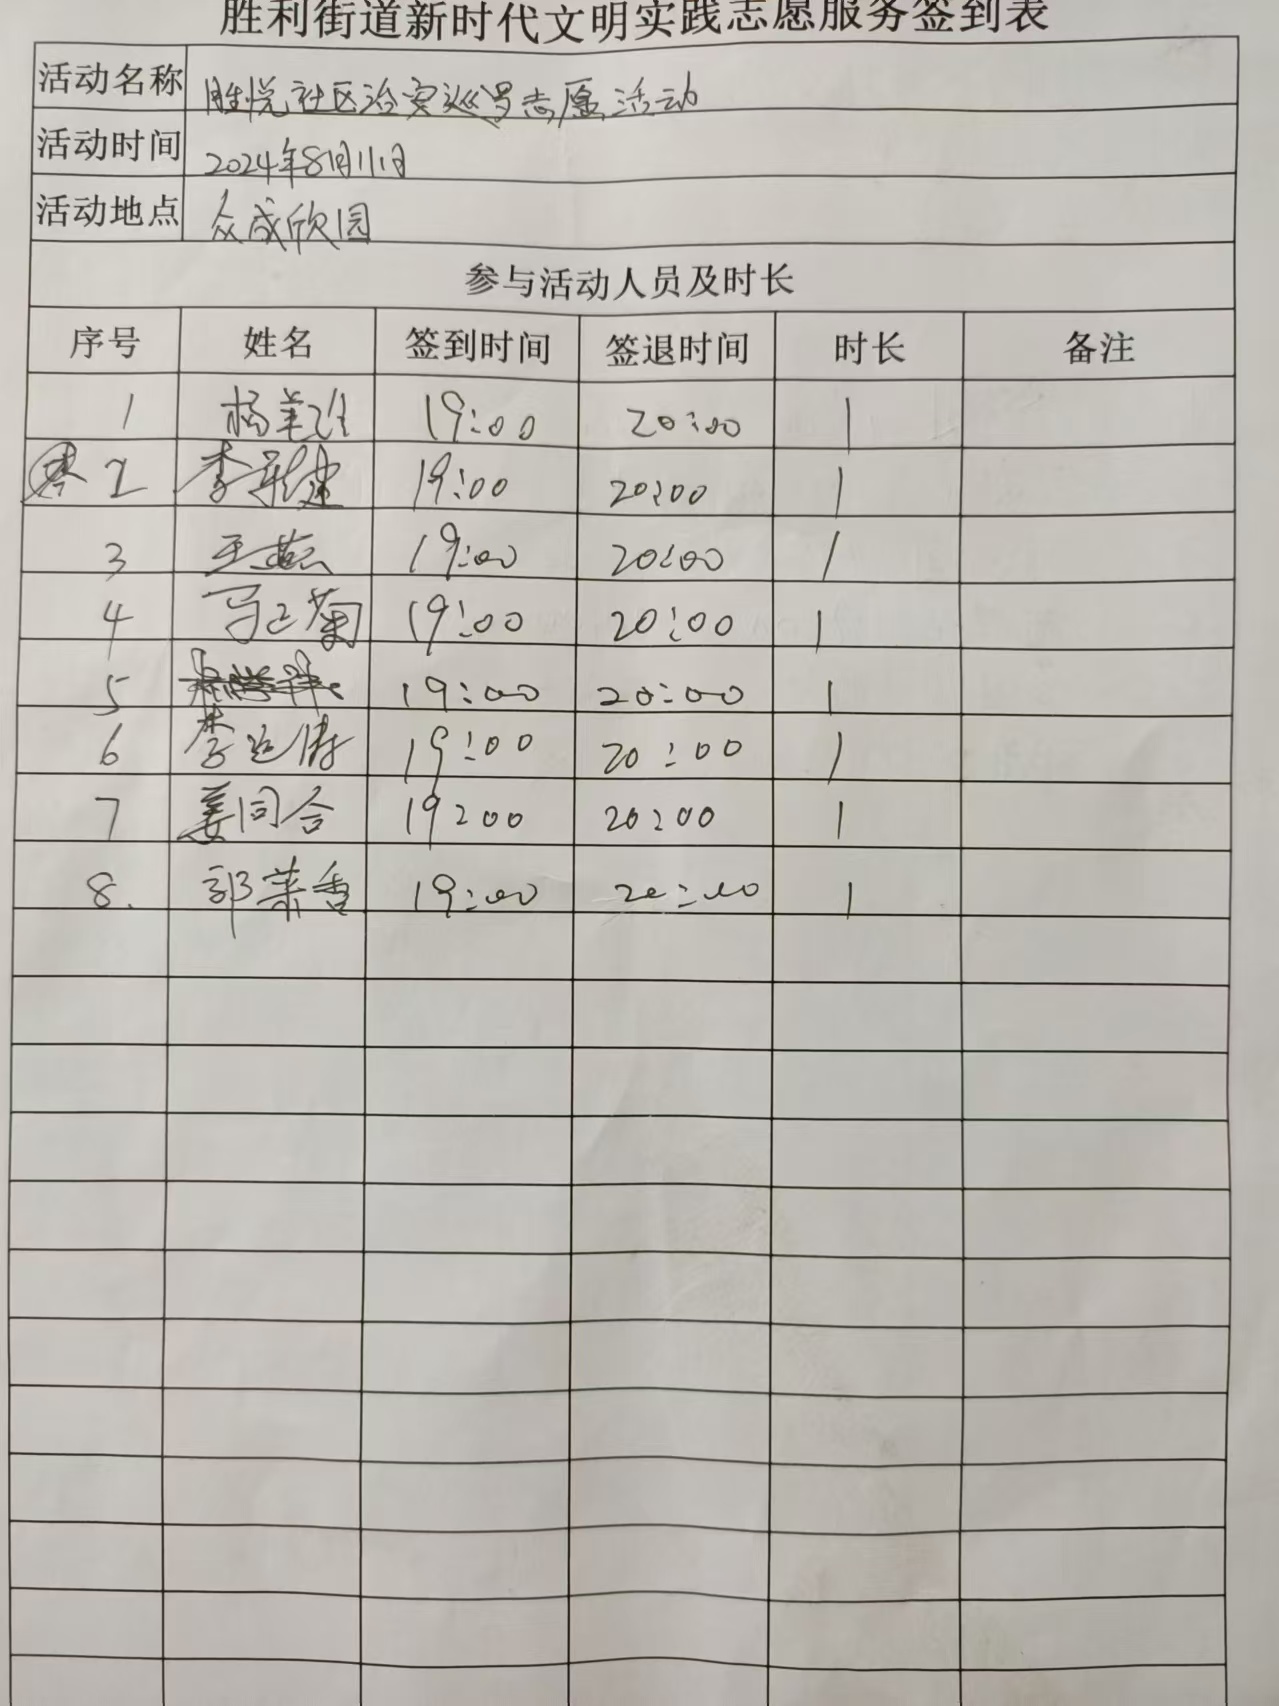 胜利街道新时代文明实践志愿服务签到表
活动名称 胜悦社区治安巡逻志愿活动
活动时间 2024年8月11日
活动地点 众成欣园
参与活动人员及时长
序号 姓名 签到时间 签退时间 时长 备注
1 杨美玲 19:00 20:00 1
2 李新建 19:00 20:00 1
3 王燕 19:00 20:00 1
4 马正菊 19:00 20:00 1
5 19:00 20:00 1
6 李 19:00 20:00 1
7 姜同合 19:00 20:00 1
8. 郭荣香 19:00 20:00 1